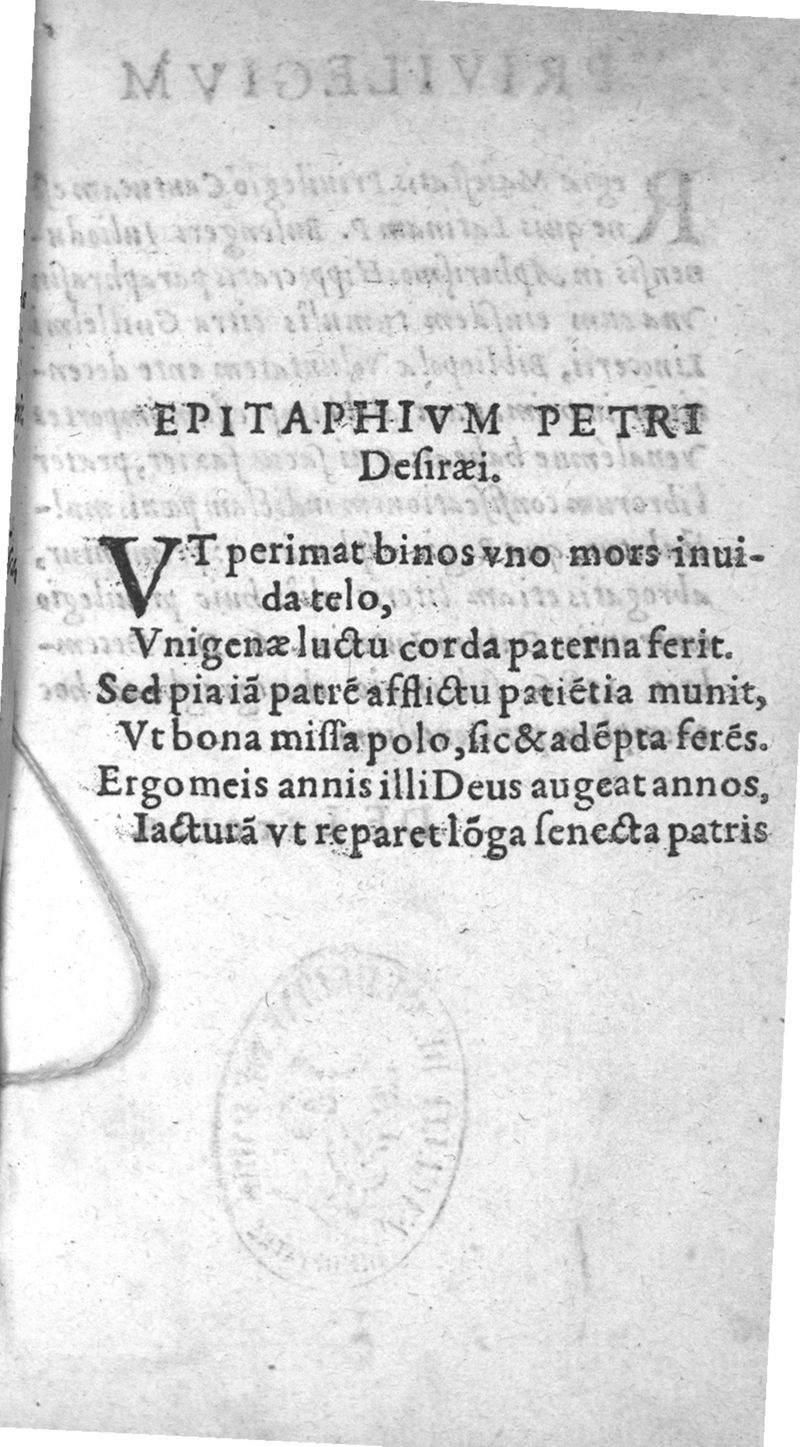 EPITAPHIVM PETRI
Desiræi.
VT perimat binos vno mors inui-
da telo,
Vnigenæ luctu corda paterna ferit.
Sed pia iā patrē afflictū patiētia munit,
Vt bona miſſa polo, ſic & adēpta ferēs.
Ergo meis annis illi Deus augeat annos,
Iacturā vt reparet lōga ſenecta patris